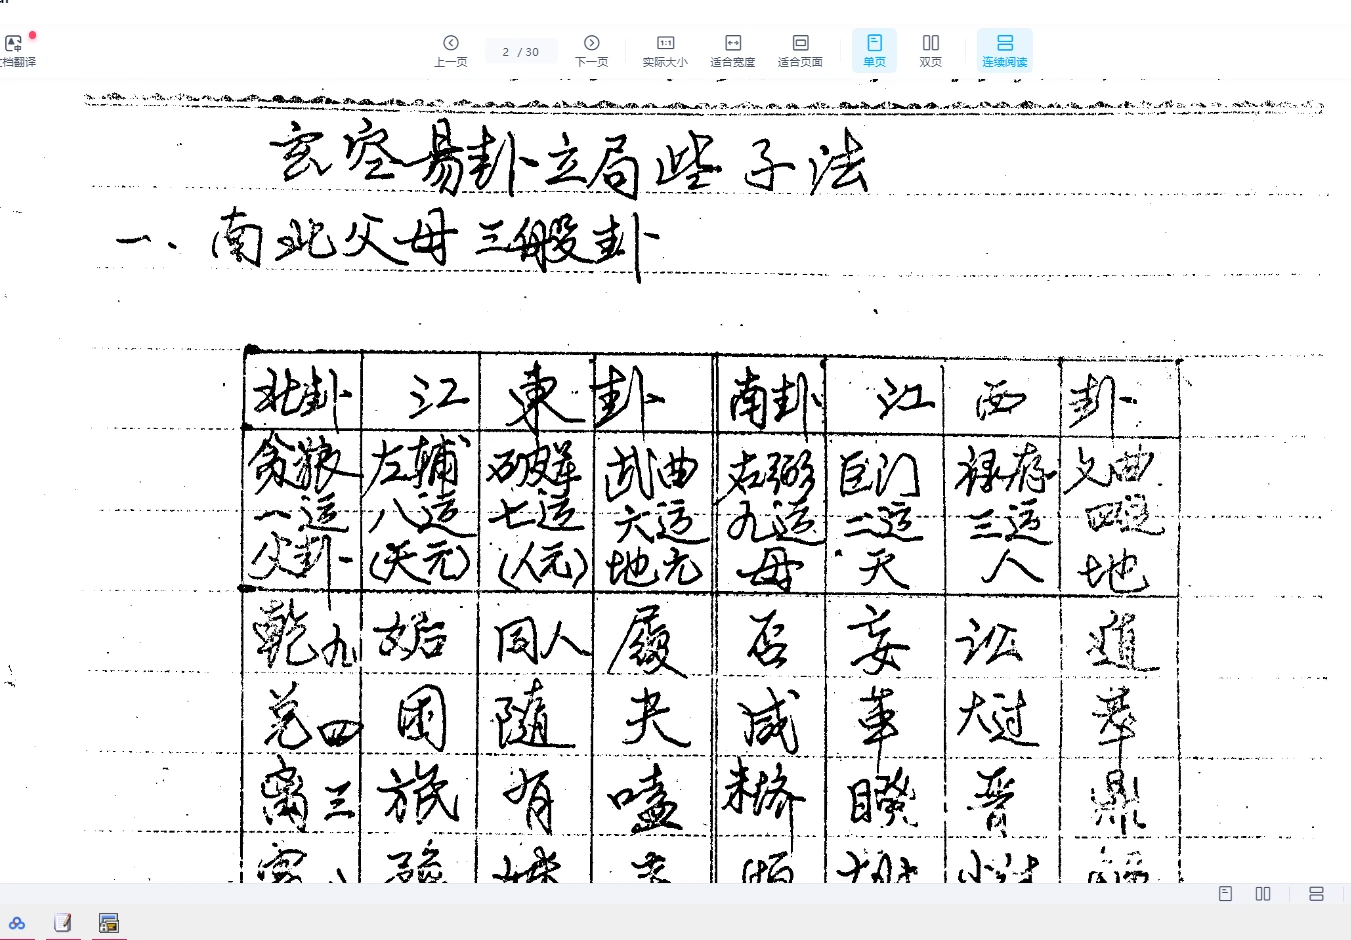 文档翻译
上一页
2 / 30
下一页
1:1
实际大小
适合宽度
适合页面
单页
双页
连续阅读
玄空易卦立局些子法
一、南北父母三般卦
北卦 江 東 卦 南卦 江 西 卦
貪狼 左辅 破軍 武曲 右弼 巨门 禄存 文曲
一运 八运 七运 六运 九运 二运 三运 四运
父卦 (天元) (人元) 地元 母 天 人 地
乾九 姤 同人 履 否 妄 讼 遁
兑四 困 随 夬 咸 革 大过 萃
离三 旅 有 嗑 未济 睽 晋 鼎